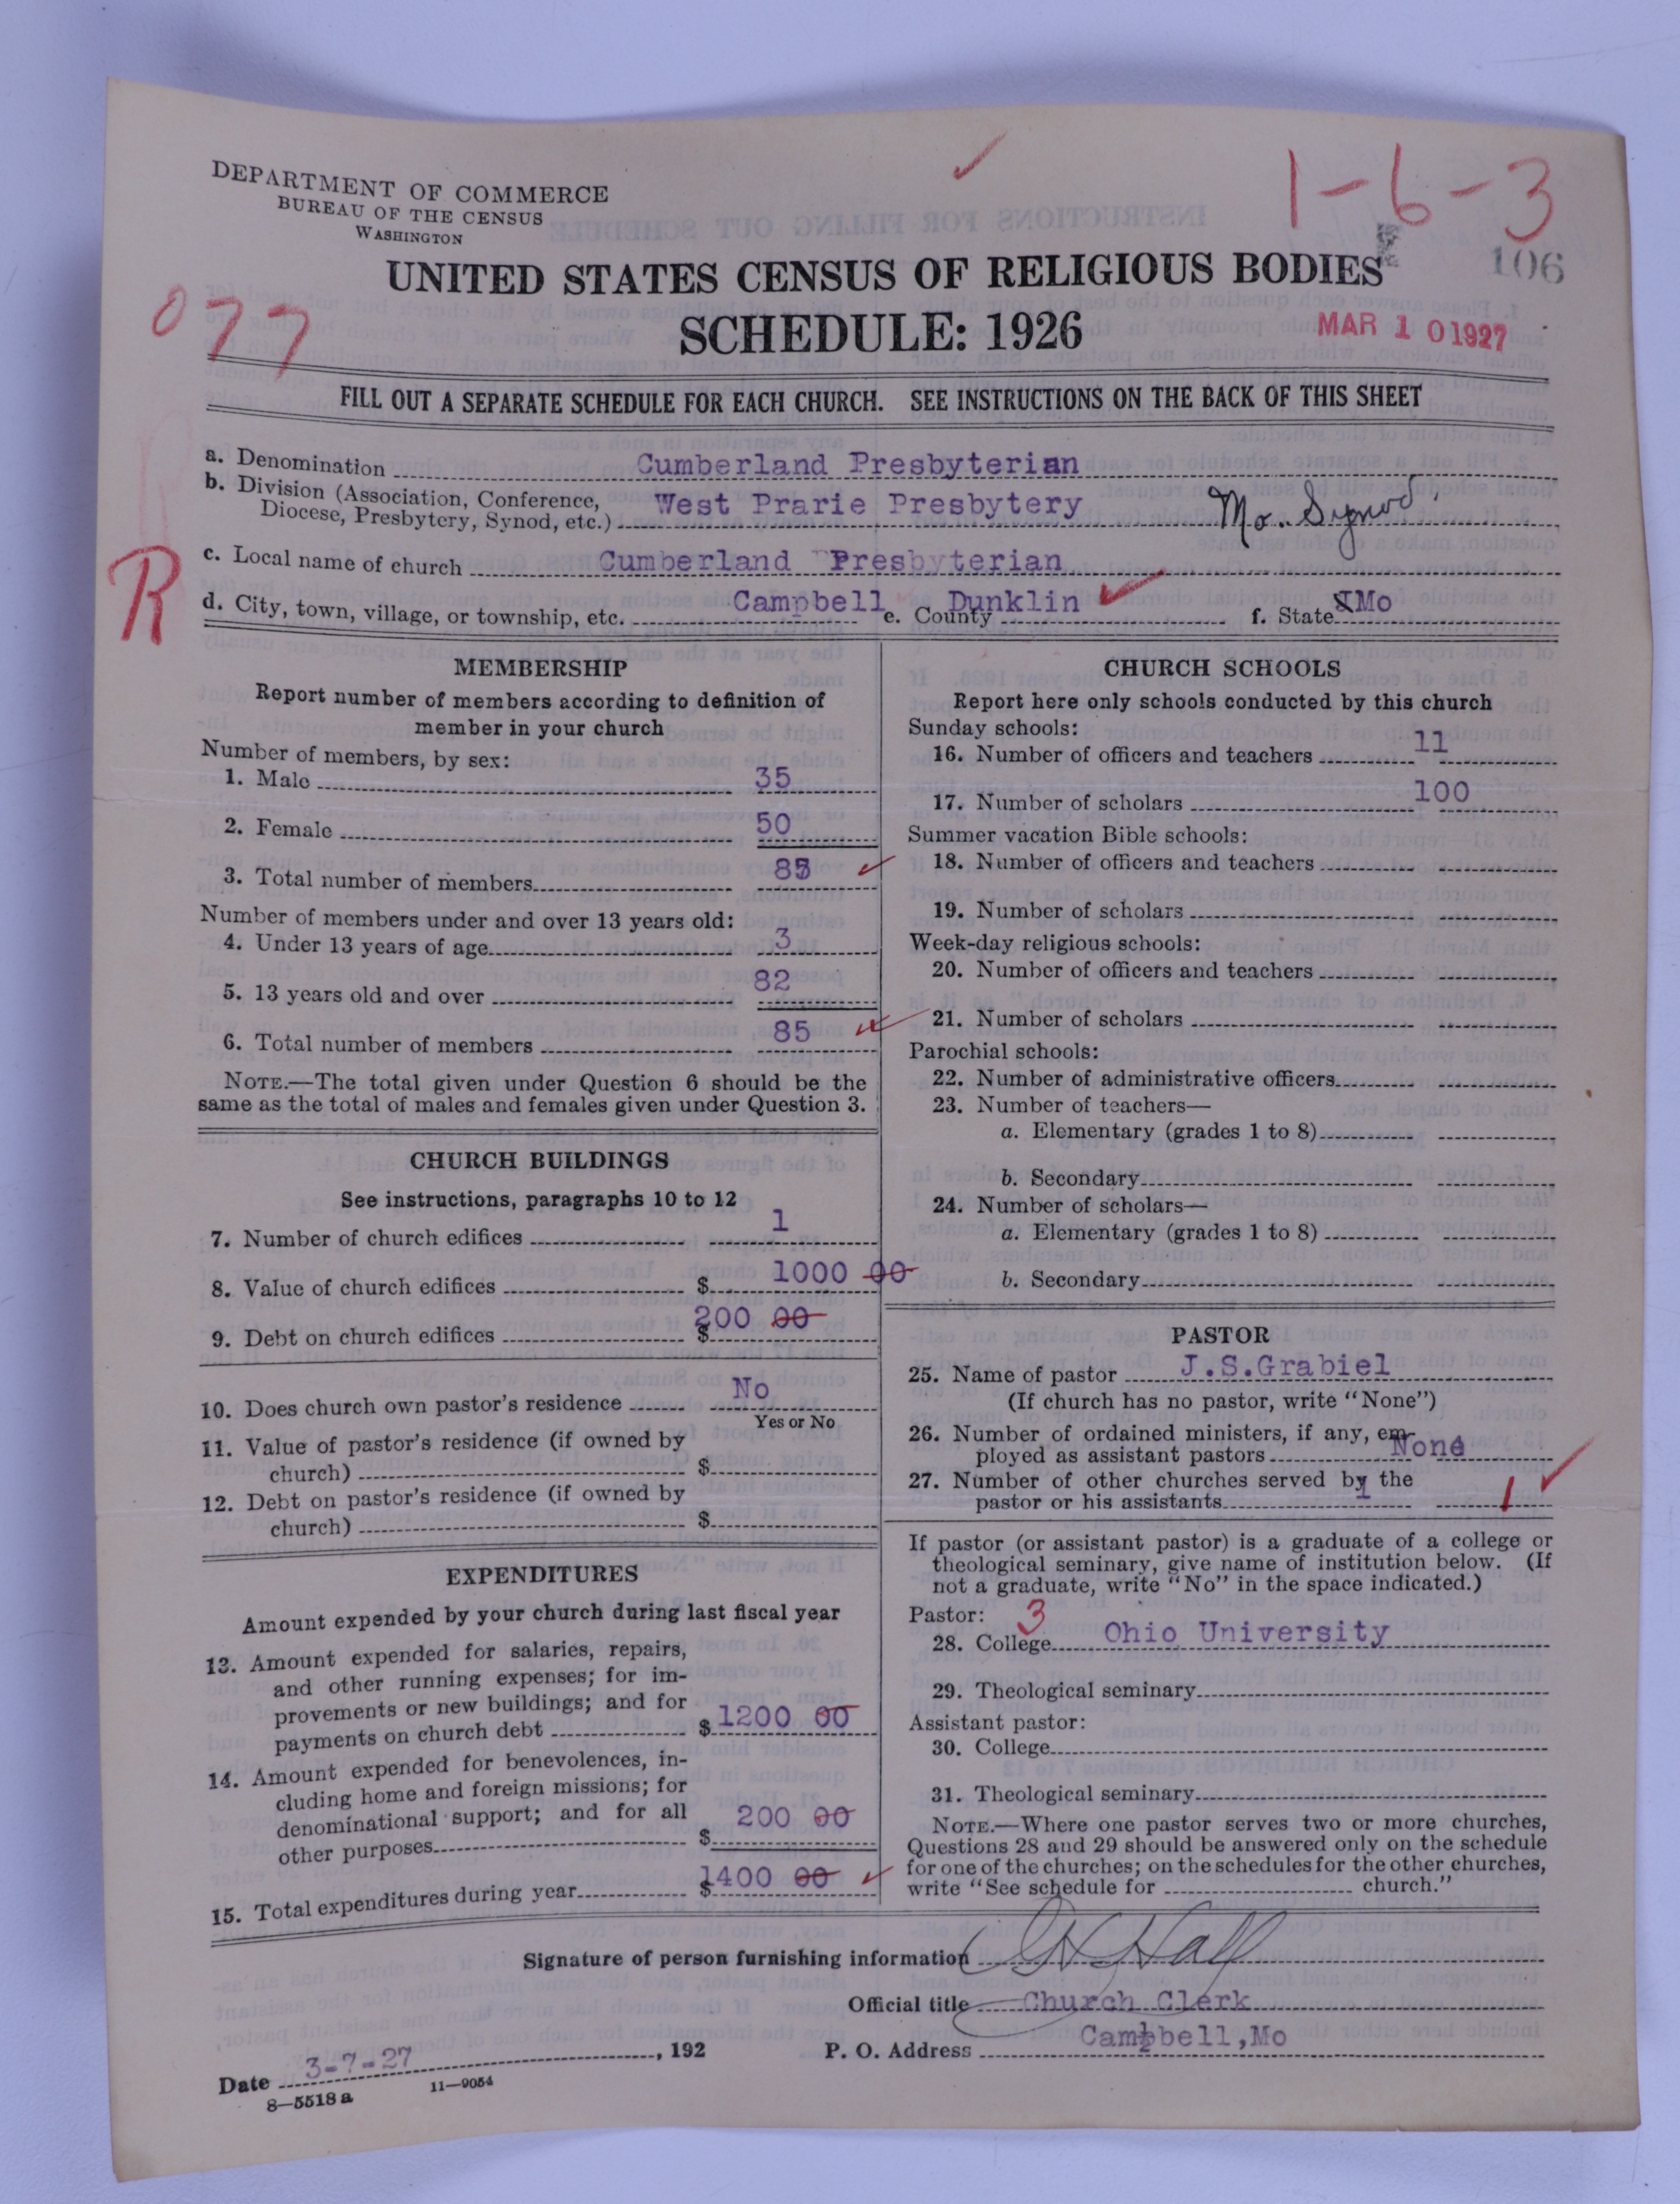 DEPARTMENT OF COMMERCE
BUREAU OF THE CENSUS
WASHINGTON
1-6-3
106
077
UNITED STATES CENSUS OF RELIGIOUS BODIES
SCHEDULE: 1926
MAR 10 1927
FILL OUT A SEPARATE SCHEDULE FOR EACH CHURCH. SEE INSTRUCTIONS ON THE BACK OF THIS SHEET
a. Denomination Cumberland Presbyterian
b. Division (Association, Conference, Diocese, Presbytery, Synod, etc.) West Prarie Presbytery Mo. Synod
R
c. Local name of church Cumberland Presbyterian
d. City, town, village, or township, etc. Campbell e. County Dunklin f. State Mo
MEMBERSHIP
Report number of members according to definition of
member in your church
Number of members, by sex:
1. Male 35
2. Female 50
3. Total number of members 85
Number of members under and over 13 years old:
4. Under 13 years of age 3
5. 13 years old and over 82
6. Total number of members 85
NOTE.—The total given under Question 6 should be the
same as the total of males and females given under Question 3.
CHURCH BUILDINGS
See instructions, paragraphs 10 to 12
7. Number of church edifices 1
8. Value of church edifices $ 1000 00
9. Debt on church edifices $ 200 00
10. Does church own pastor's residence No
Yes or No
11. Value of pastor's residence (if owned by
church) $
12. Debt on pastor's residence (if owned by
church) $
EXPENDITURES
Amount expended by your church during last fiscal year
13. Amount expended for salaries, repairs,
and other running expenses; for im-
provements or new buildings; and for
payments on church debt $ 1200 00
14. Amount expended for benevolences, in-
cluding home and foreign missions; for
denominational support; and for all
other purposes $ 200 00
15. Total expenditures during year $ 1400 00
CHURCH SCHOOLS
Report here only schools conducted by this church
Sunday schools:
16. Number of officers and teachers 11
17. Number of scholars 100
Summer vacation Bible schools:
18. Number of officers and teachers
19. Number of scholars
Week-day religious schools:
20. Number of officers and teachers
21. Number of scholars
Parochial schools:
22. Number of administrative officers
23. Number of teachers—
a. Elementary (grades 1 to 8)
b. Secondary
24. Number of scholars—
a. Elementary (grades 1 to 8)
b. Secondary
PASTOR
25. Name of pastor J.S.Grabiel
(If church has no pastor, write "None")
26. Number of ordained ministers, if any, em-
ployed as assistant pastors None
27. Number of other churches served by the
pastor or his assistants 1 1
If pastor (or assistant pastor) is a graduate of a college or
theological seminary, give name of institution below. (If
not a graduate, write "No" in the space indicated.)
Pastor: 3
28. College Ohio University
29. Theological seminary
Assistant pastor:
30. College
31. Theological seminary
NOTE.—Where one pastor serves two or more churches,
Questions 28 and 29 should be answered only on the schedule
for one of the churches; on the schedules for the other churches,
write "See schedule for church."
Signature of person furnishing information Hall
Official title Church Clerk
Date 3-7-27, 192 P. O. Address Campbell,Mo
8—5518 a 11—9054